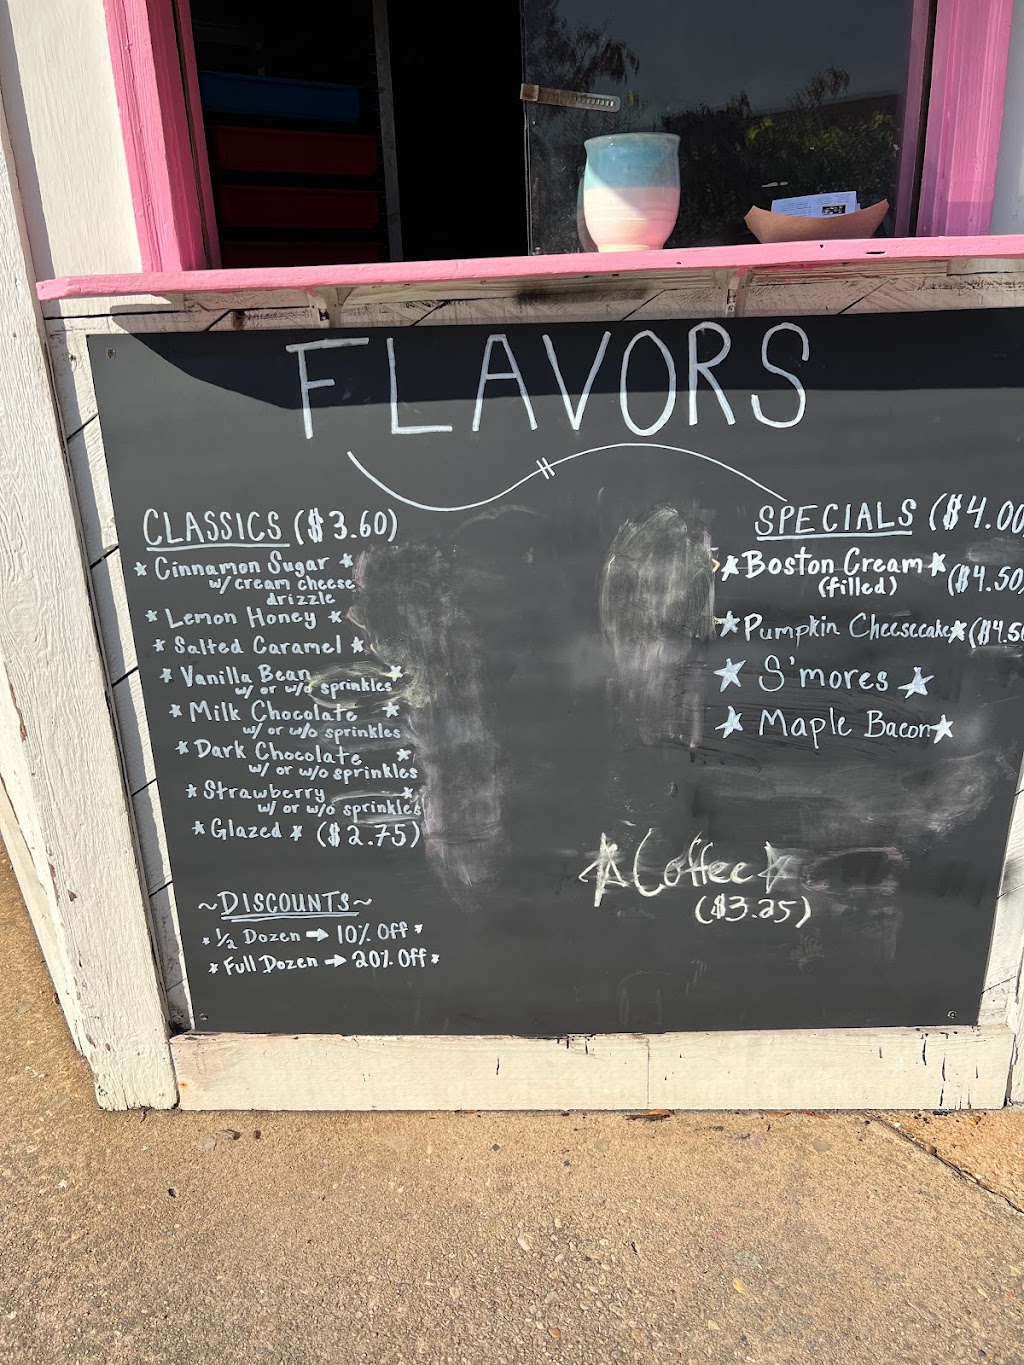 FLAVORS
CLASSICS ($3.60)
Cinnamon Sugar
w/ cream cheese
drizzle
Lemon Honey
Salted Caramel
Vanilla Bean
w/ or w/o sprinkles
Milk Chocolate
w/ or w/o sprinkles
Dark Chocolate
w/ or w/o sprinkles
Strawberry
w/ or w/o sprinkles
Glazed ($2.75)
~DISCOUNTS~
1/2 Dozen → 10% Off
Full Dozen → 20% Off
SPECIALS ($4.00
Boston Cream ($4.50)
(filled)
Pumpkin Cheesecake ($4.50
S'mores
Maple Bacon
Coffee
($3.25)